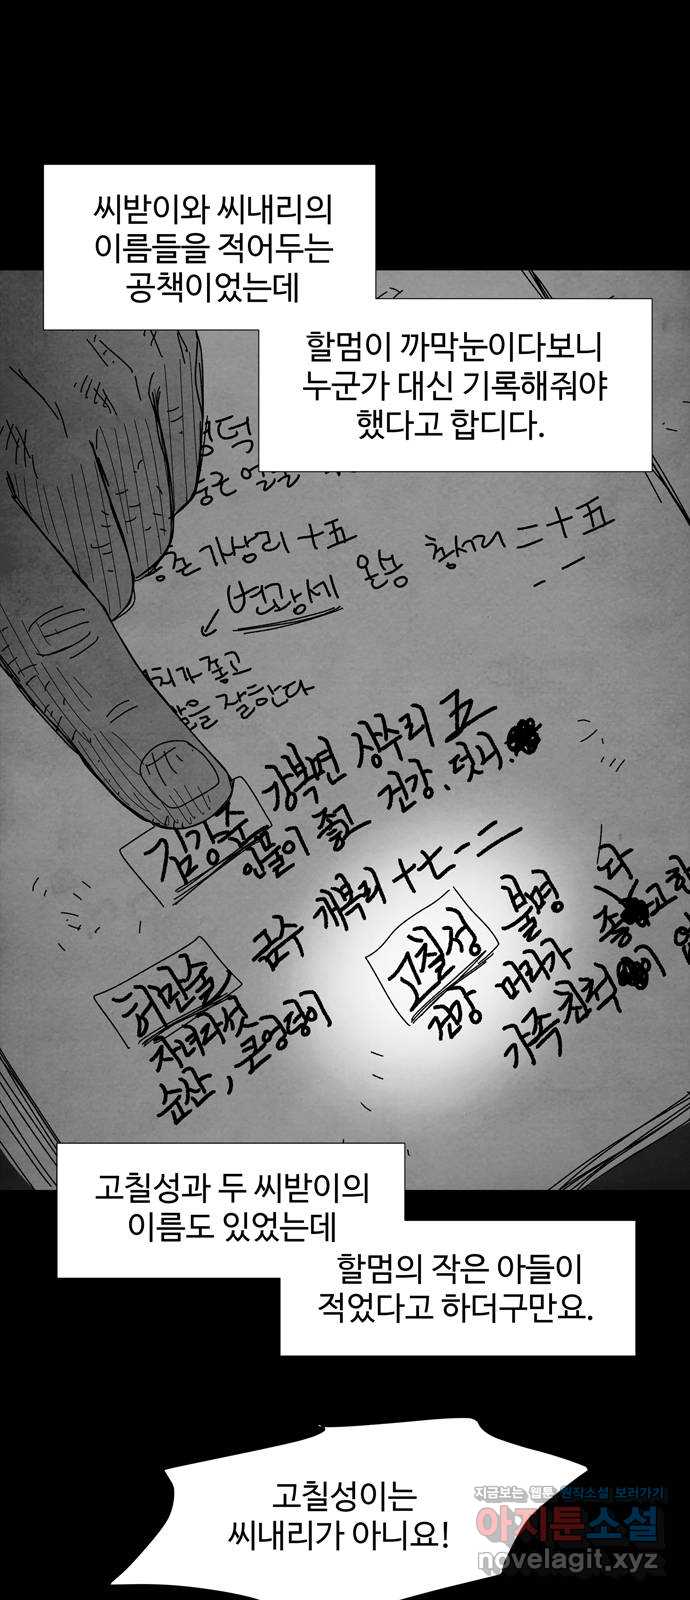 씨받이와 씨내리의
이름들을 적어두는
공책이었는데
할멈이 까막눈이다보니
누군가 대신 기록해줘야
했다고 합디다.
덕
가상리 十五
변광세 온승 총서리 二十五
가 좋고
을 잘한다
김강준 강북면 상수리 五
인물이 좋고 건강. 덧니.
허민술 금수 개북리 十七 - 二
자녀다섯
순산, 큰엉덩이
고칠성 불명
건강 머리가 좋다고
가족친척이
고칠성과 두 씨받이의
이름도 있었는데
할멈의 작은 아들이
적었다고 하더구만요.
고칠성이는
씨내리가 아니요!
지금보는 웹툰 원작소설 보러가기
아지툰소설
novelagit.xyz